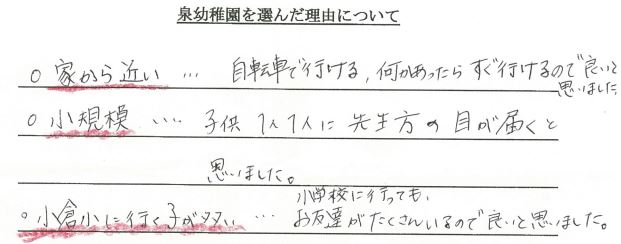 泉幼稚園を選んだ理由について
○ 家から近い … 自転車で行ける,何かあったらすぐ行けるので良いと
思いました
○ 小規模 ‥‥ 子供1人1人に先生方の目が届くと
思いました。
小学校に行っても、
○ 小倉小に行く子が多い … お友達がたくさんいるので良いと思いました。